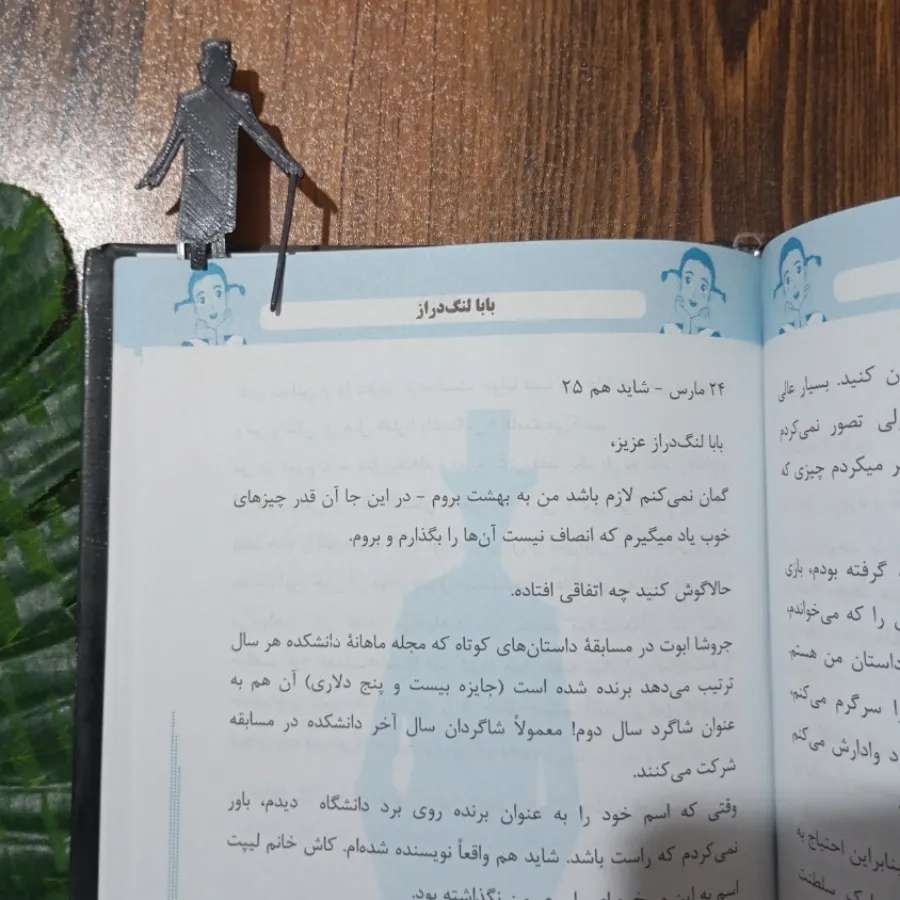 بابا لنگ‌دراز
۲۴ مارس - شاید هم ۲۵
بابا لنگ‌دراز عزیز،
گمان نمی‌کنم لازم باشد من به بهشت بروم - در این جا آن قدر چیزهای
خوب یاد میگیرم که انصاف نیست آن‌ها را بگذارم و بروم.
حالاگوش کنید چه اتفاقی افتاده.
جروشا ابوت در مسابقهٔ داستان‌های کوتاه که مجله ماهانهٔ دانشکده هر سال
ترتیب می‌دهد برنده شده است (جایزه بیست و پنج دلاری) آن هم به
عنوان شاگرد سال دوم! معمولاً شاگردان سال آخر دانشکده در مسابقه
شرکت می‌کنند.
وقتی که اسم خود را به عنوان برنده روی برد دانشگاه دیدم، باور
نمی‌کردم که راست باشد. شاید هم واقعاً نویسنده شده‌ام. کاش خانم لیپت
نگذاشته بود.
کنید. بسیار عالی
تصور نمی‌کردم
میکردم چیزی که
گرفته بودم، بازی
را که می‌خواندم،
داستان من هستم
سرگرم می‌کنم،
وادارش می‌کنم
بنابراین احتیاج به
سلطنت